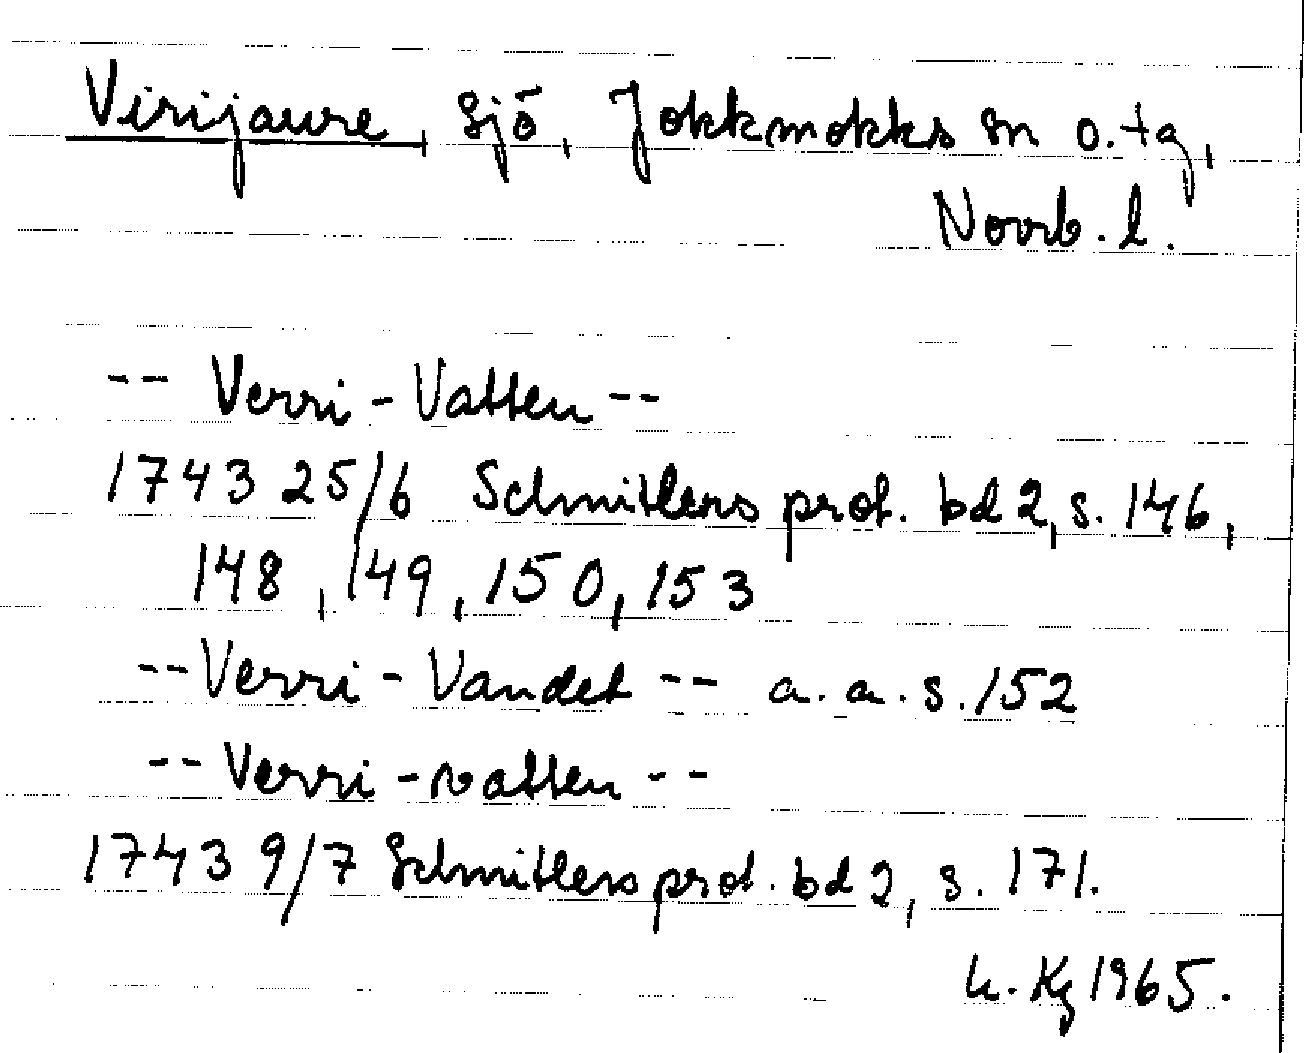 Virijaure, sjö, Jokkmokks sn o. tg,
Norrb. l.
-- Verri-Vatten --
1743 25/6 Schnitlers prot. bd 2, s. 146,
148, 149, 150, 153
-- Verri-Vandet -- a. a. s. 152
-- Verri-vatten --
1743 9/7 Schnitlers prot. bd 2, s. 171.
Kg 1965.